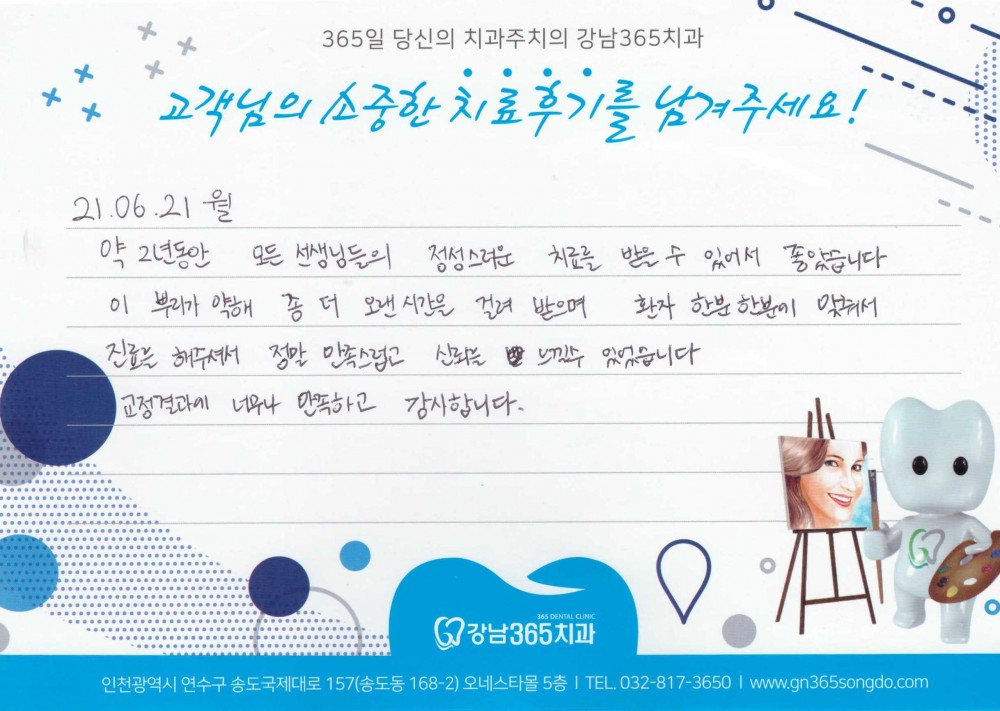 365일 당신의 치과주치의 강남365치과
고객님의 소중한 치료후기를 남겨주세요!
21.06.21 월
약 2년동안 모든 선생님들의 정성스러운 치료를 받을 수 있어서 좋았습니다
이 뿌리가 약해 좀 더 오랜 시간을 걸려 받으며 환자 한분 한분에 맞춰서
진료를 해주셔서 정말 만족스럽고 신뢰를 느낄수 있었습니다
교정결과에 너무나 만족하고 감사합니다.
365 DENTAL CLINIC
강남365치과
인천광역시 연수구 송도국제대로 157(송도동 168-2) 오네스타몰 5층 | TEL. 032-817-3650 | www.gn365songdo.com